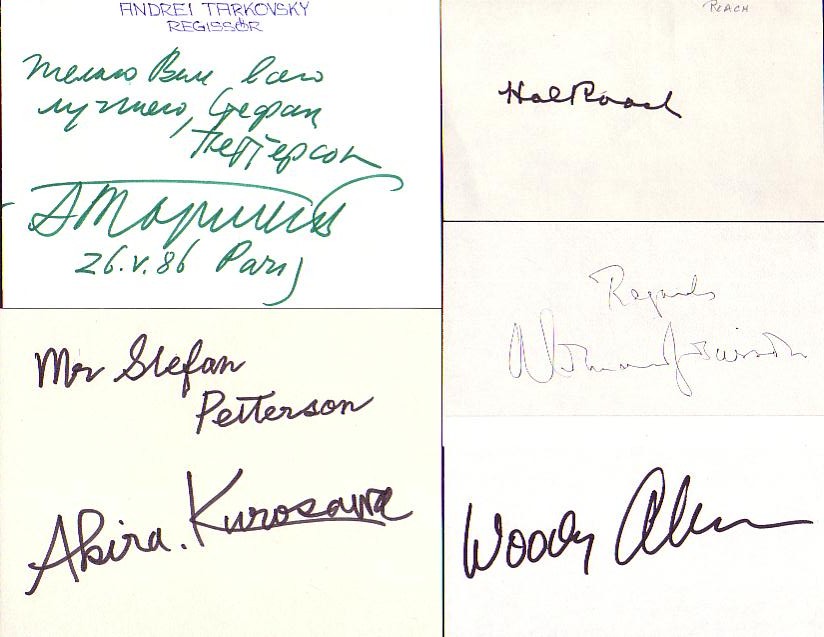 ANDREI TARKOVSKY
REGISSÖR
Желаю Вам всего
лучшего, Стефан
Петтерсон
А Тарковский
26.V.86 Paris
Mr Stefan
Petterson
Akira. Kurosawa
ROACH
Hal Roach
Regards
Norman Jewison
Woody Allen